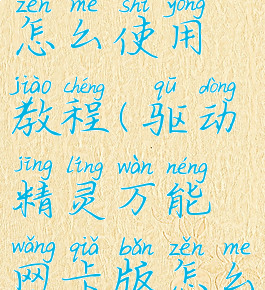 zěn me shǐ yòng
怎么使用
jiào chéng qū dòng
教程(驱动
jīng líng wàn néng
精灵万能
wǎng qiǎ bǎn zěn me
网卡版怎么